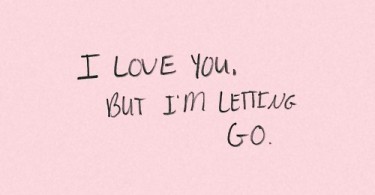 I LOVE YOU.
BUT I'M LETTING
GO.